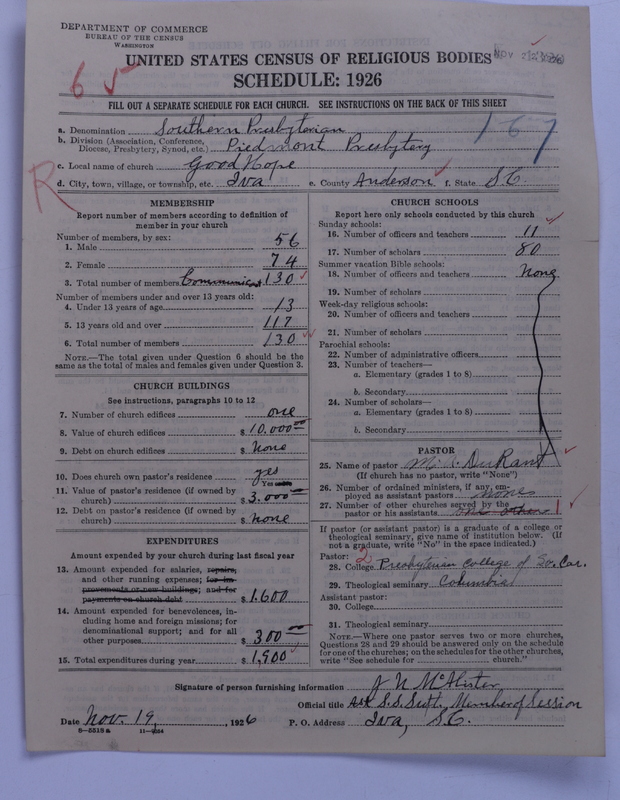 DEPARTMENT OF COMMERCE
BUREAU OF THE CENSUS
WASHINGTON
UNITED STATES CENSUS OF RELIGIOUS BODIES
SCHEDULE: 1926
65
FILL OUT A SEPARATE SCHEDULE FOR EACH CHURCH. SEE INSTRUCTIONS ON THE BACK OF THIS SHEET
a. Denomination Southern Presbyterian
167
b. Division (Association, Conference, Diocese, Presbytery, Synod, etc.) Piedmont Presbytery
c. Local name of church Good Hope
R
d. City, town, village, or township, etc. Iva e. County Anderson f. State S.C.
MEMBERSHIP
Report number of members according to definition of
member in your church
Number of members, by sex:
1. Male 56
2. Female 74
3. Total number of members 130
Number of members under and over 13 years old:
4. Under 13 years of age 13
5. 13 years old and over 117
6. Total number of members 130
NOTE.—The total given under Question 6 should be the
same as the total of males and females given under Question 3.
CHURCH BUILDINGS
See instructions, paragraphs 10 to 12
7. Number of church edifices one
8. Value of church edifices $ 10,000.00
9. Debt on church edifices $ None
10. Does church own pastor's residence yes
Yes
11. Value of pastor's residence (if owned by
church) $ 3,000.00
12. Debt on pastor's residence (if owned by
church) $ None
EXPENDITURES
Amount expended by your church during last fiscal year
13. Amount expended for salaries, repairs,
and other running expenses; for im-
provements or new buildings; and for
payments on church debt $ 1,600
14. Amount expended for benevolences, in-
cluding home and foreign missions; for
denominational support; and for all
other purposes $ 300.00
15. Total expenditures during year $ 1,900
CHURCH SCHOOLS
Report here only schools conducted by this church
Sunday schools:
16. Number of officers and teachers 11
17. Number of scholars 80
Summer vacation Bible schools:
18. Number of officers and teachers None
19. Number of scholars
Week-day religious schools:
20. Number of officers and teachers
21. Number of scholars
Parochial schools:
22. Number of administrative officers
23. Number of teachers—
a. Elementary (grades 1 to 8)
b. Secondary
24. Number of scholars—
a. Elementary (grades 1 to 8)
b. Secondary
PASTOR
25. Name of pastor DuRant
(If church has no pastor, write "None")
26. Number of ordained ministers, if any, em-
ployed as assistant pastors None
27. Number of other churches served by the
pastor or his assistants one other 1
If pastor (or assistant pastor) is a graduate of a college or
theological seminary, give name of institution below. (If
not a graduate, write "No" in the space indicated.)
Pastor: 2
28. College Presbyterian College of So. Car.
29. Theological seminary Columbia
Assistant pastor:
30. College
31. Theological seminary
NOTE.—Where one pastor serves two or more churches,
Questions 28 and 29 should be answered only on the schedule
for one of the churches; on the schedules for the other churches,
write "See schedule for church."
Signature of person furnishing information J N McAlister
Official title S.S. Supt., Member of Session
Date Nov. 19, 1926 P. O. Address Iva, S.C.
8-5518 a 11-9264